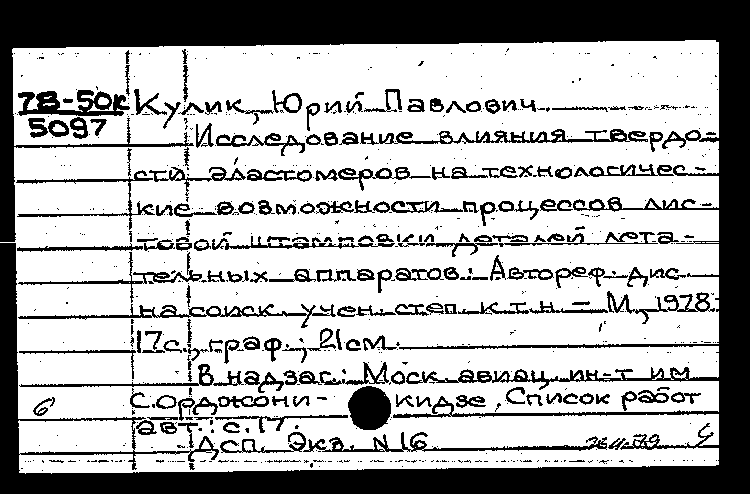 78-50к Кулик, Юрий Павлович
5097
Исследование влияния твердо=
сти эластомеров на технологичес-
кие возможности процессов лис-
товой штамповки деталей лета-
тельных аппаратов: Автореф. дис.
на соиск. учен. степ. к.т.н. – М., 1978.
17с., граф.; 21см.
В надзаг.: Моск. авиац. ин-т им
6 С.Орджони- кидзе. Список работ
авт.: с.17.
Дсп. Экз. N 16